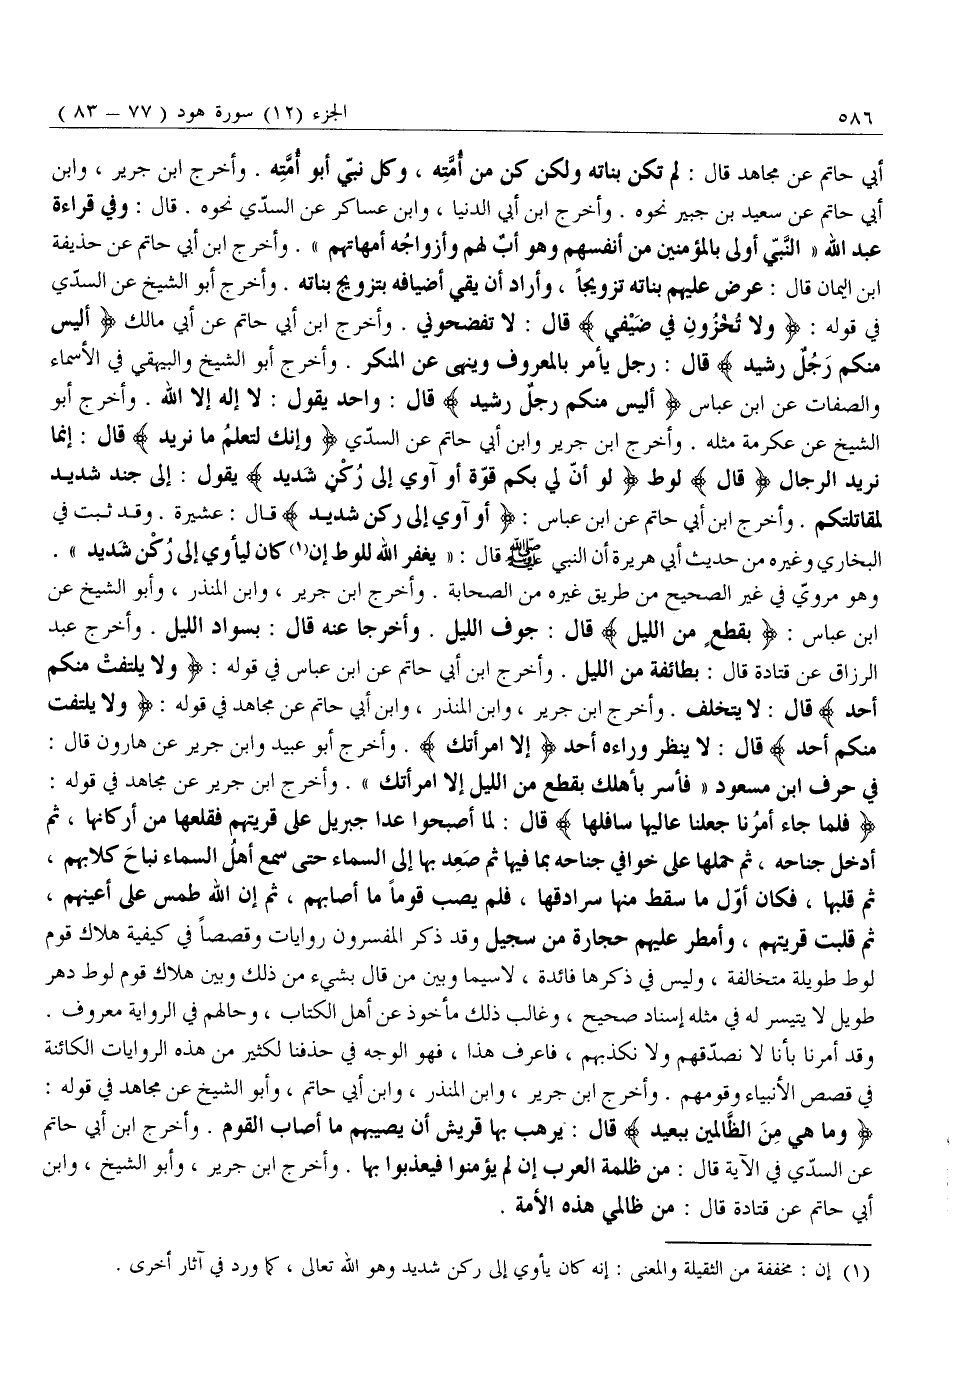 ٥٨٦ الجزء (١٢) سورة هود ( ٧٧ – ٨٣ )
أبي حاتم عن مجاهد قال : لم تكن بناته ولكن كن من أُمَّتِه ، وكل نبيّ أبو أُمَّتِه . وأخرج ابن جرير ، وابن
أبي حاتم عن سعيد بن جبير نحوه . وأخرج ابن أبي الدنيا ، وابن عساكر عن السدّي نحوه . قال : وفي قراءة
عبد الله « النَّبيّ أولى بالمؤمنين من أنفسهم وهو أبٌ لهم وأزواجُه أمهاتهم » . وأخرج ابن أبي حاتم عن حذيفة
ابن اليمان قال : عرض عليهم بناته تزويجاً ، وأراد أن يقي أضيافه بتزويج بناته . وأخرج أبو الشيخ عن السدّي
في قوله : ﴿ ولا تُخْزُونِ في ضَيْفي ﴾ قال : لا تفضحوني . وأخرج ابن أبي حاتم عن أبي مالك ﴿ أليس
منكم رَجُلٌ رشيد ﴾ قال : رجل يأمر بالمعروف وينهى عن المنكر . وأخرج أبو الشيخ والبيهقي في الأسماء
والصفات عن ابن عباس ﴿ أليس منكم رجلٌ رشيد ﴾ قال : واحد يقول : لا إله إلا الله . وأخرج أبو
الشيخ عن عكرمة مثله . وأخرج ابن جرير وابن أبي حاتم عن السدّي ﴿ وإنك لتعلمُ ما نريد ﴾ قال : إنما
نريد الرجال ﴿ قال ﴾ لوط ﴿ لو أنّ لي بكم قوّة أو آوي إلى رُكْنٍ شَديد ﴾ يقول : إلى جند شديد
لمقاتلتكم . وأخرج ابن أبي حاتم عن ابن عباس : ﴿ أو آوي إلى ركن شديد ﴾ قال : عشيرة . وقد ثبت في
البخاري وغيره من حديث أبي هريرة أن النبي ﷺ قال : « يغفر الله للوط إن(١) كان ليأوي إلى رُكْن شَديد » .
وهو مرويّ في غير الصحيح من طريق غيره من الصحابة . وأخرج ابن جرير ، وابن المنذر ، وأبو الشيخ عن
ابن عباس : ﴿ بقطعٍ من الليل ﴾ قال : جوف الليل . وأخرجا عنه قال : بسواد الليل . وأخرج عبد
الرزاق عن قتادة قال : بطائفة من الليل . وأخرج ابن أبي حاتم عن ابن عباس في قوله : ﴿ ولا يلتفتْ منكم
أحد ﴾ قال : لا يتخلف . وأخرج ابن جرير ، وابن المنذر ، وابن أبي حاتم عن مجاهد في قوله : ﴿ ولا يلتفت
منكم أحد ﴾ قال : لا ينظر وراءه أحد ﴿ إلا امرأتك ﴾ . وأخرج أبو عبيد وابن جرير عن هارون قال :
في حرف ابن مسعود « فأسر بأهلك بقطع من الليل إلا امرأتك » . وأخرج ابن جرير عن مجاهد في قوله :
﴿ فلما جاء أمرُنا جعلنا عاليها سافلها ﴾ قال : لما أصبحوا عدا جبريل على قريتهم فقلعها من أركانها ، ثم
أدخل جناحه ، ثم حملها على خوافي جناحه بما فيها ثم صَعِد بها إلى السماء حتى سمع أهلُ السماء نباحَ كلابهم ،
ثم قلبها ، فكان أوّل ما سقط منها سرادقها ، فلم يصب قوماً ما أصابهم ، ثم إن الله طمس على أعينهم ،
ثم قلبت قريتهم ، وأمطر عليهم حجارة من سجيل وقد ذكر المفسرون روايات وقصصاً في كيفية هلاك قوم
لوط طويلة متخالفة ، وليس في ذكرها فائدة ، لاسيما وبين من قال بشيء من ذلك وبين هلاك قوم لوط دهر
طويل لا يتيسر له في مثله إسناد صحيح ، وغالب ذلك مأخوذ عن أهل الكتاب ، وحالهم في الرواية معروف .
وقد أمرنا بأنا لا نصدّقهم ولا نكذبهم ، فاعرف هذا ، فهو الوجه في حذفنا لكثير من هذه الروايات الكائنة
في قصص الأنبياء وقومهم . وأخرج ابن جرير ، وابن المنذر ، وابن أبي حاتم ، وأبو الشيخ عن مجاهد في قوله :
﴿ وما هي مِنَ الظَّالمين ببعيد ﴾ قال : يرهب بها قريش أن يصيبهم ما أصاب القوم . وأخرج ابن أبي حاتم
عن السدّي في الآية قال : من ظلمة العرب إن لم يؤمنوا فيعذبوا بها . وأخرج ابن جرير ، وأبو الشيخ ، وابن
أبي حاتم عن قتادة قال : من ظالمي هذه الأمة .
(١) إن : مخففة من الثقيلة والمعنى : إنه كان يأوي إلى ركن شديد وهو الله تعالى ، كما ورد في آثار أخرى .